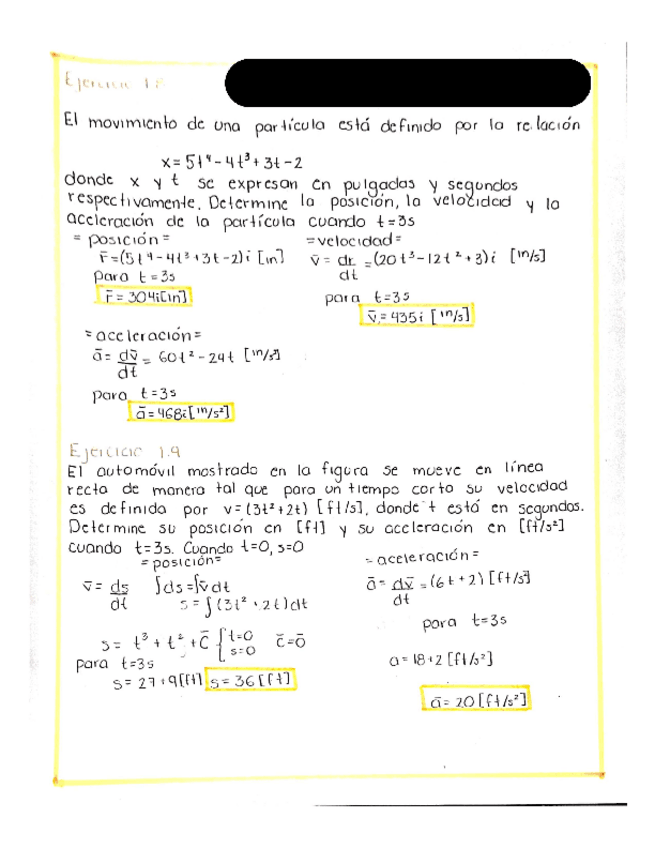 Ejercicio 1.8
El movimiento de una partícula está definido por la relación
x = 5t⁴ - 4t³ + 3t - 2
donde x y t se expresan en pulgadas y segundos
respectivamente. Determine la posición, la velocidad y la
aceleración de la partícula cuando t=3s
= posición =
r̄=(5t⁴-4t³+3t-2)i [in]
para t=3s
r̄=304i[in]
=velocidad=
v̄ = dr/dt =(20t³-12t²+3)i [in/s]
para t=3s
v̄=435i [in/s]
=aceleración=
ā = dv̄/dt = 60t²-24t [in/s²]
para t=3s
ā=468i[in/s²]
Ejercicio 1.9
El automóvil mostrado en la figura se mueve en línea
recta de manera tal que para un tiempo corto su velocidad
es definida por v=(3t²+2t) [ft/s], donde t está en segundos.
Determine su posición en [ft] y su aceleración en [ft/s²]
cuando t=3s. Cuando t=0, s=0
= posición=
v̄ = ds/dt ∫ds=∫v̄dt
s=∫(3t²+2t)dt
s= t³+t²+C̄ { t=0 s=0 C̄=0̄
para t=3s
s=27+9[ft] s=36[ft]
=aceleración=
ā= dv̄/dt =(6t+2) [ft/s²]
para t=3s
a=18+2 [ft/s²]
ā=20 [ft/s²]